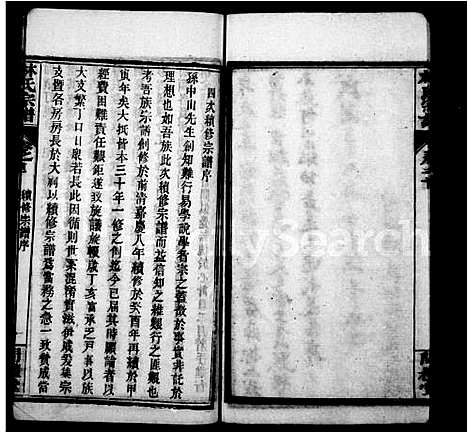 四次續修宗譜序
孫中山先生創知難行易學說學者宗之舊徵於事實非託於
理想也如吾族此次續修宗譜而益信知之難艱行之匪艱也
考吾族宗譜創修於南清嘉慶八年續修於癸酉年再續於甲
寅年矣大抵皆本三十年一修之例迄今已屆其時顧論者以
經費困難責任艱鉅遂致旋議旋輟歲丁亥富承乏戶事以族
大支繁丁口日眾若長此因循則世系混淆實滋
支暨各房房長於大祠以續修宗譜為當務之急一致贊成當
林氏宗譜
卷之首
續修宗譜序